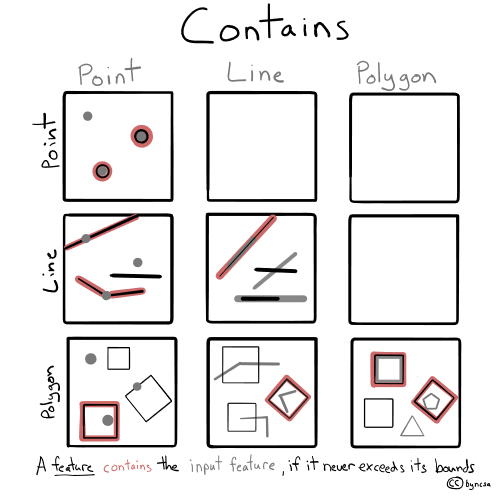 Contains
Point Line Polygon
Point
Line
Polygon
A feature contains the input feature, if it never exceeds its bounds
cc byncsa